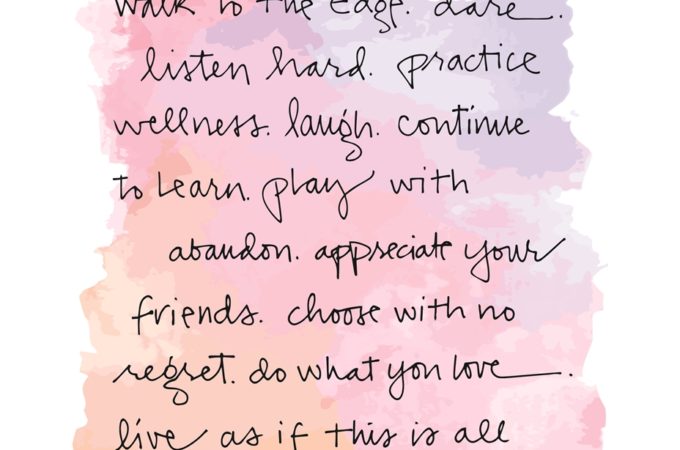 walk to the edge. dare.
listen hard. practice
wellness. laugh. continue
to learn. play with
abandon. appreciate your
friends. choose with no
regret. do what you love.
live as if this is all